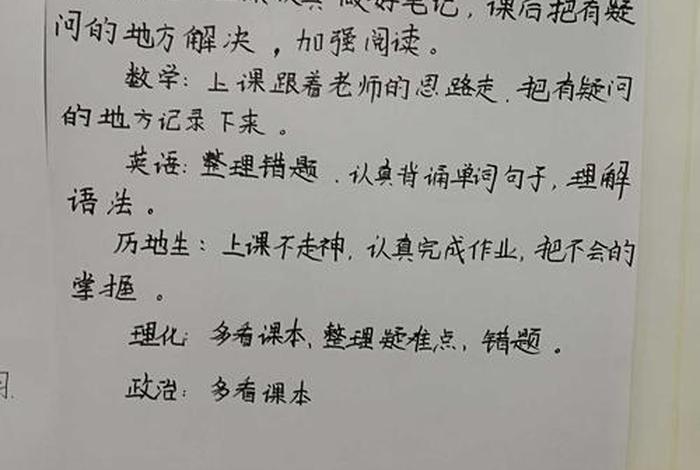 做好笔记,课后把有疑
问的地方解决,加强阅读。
数学:上课跟着老师的思路走.把有疑问
的地方记录下来。
英语:整理错题.认真背诵单词句子,理解
语法。
历地生:上课不走神,认真完成作业,把不会的
掌握。
理化:多看课本,整理疑难点,错题。
政治:多看课本